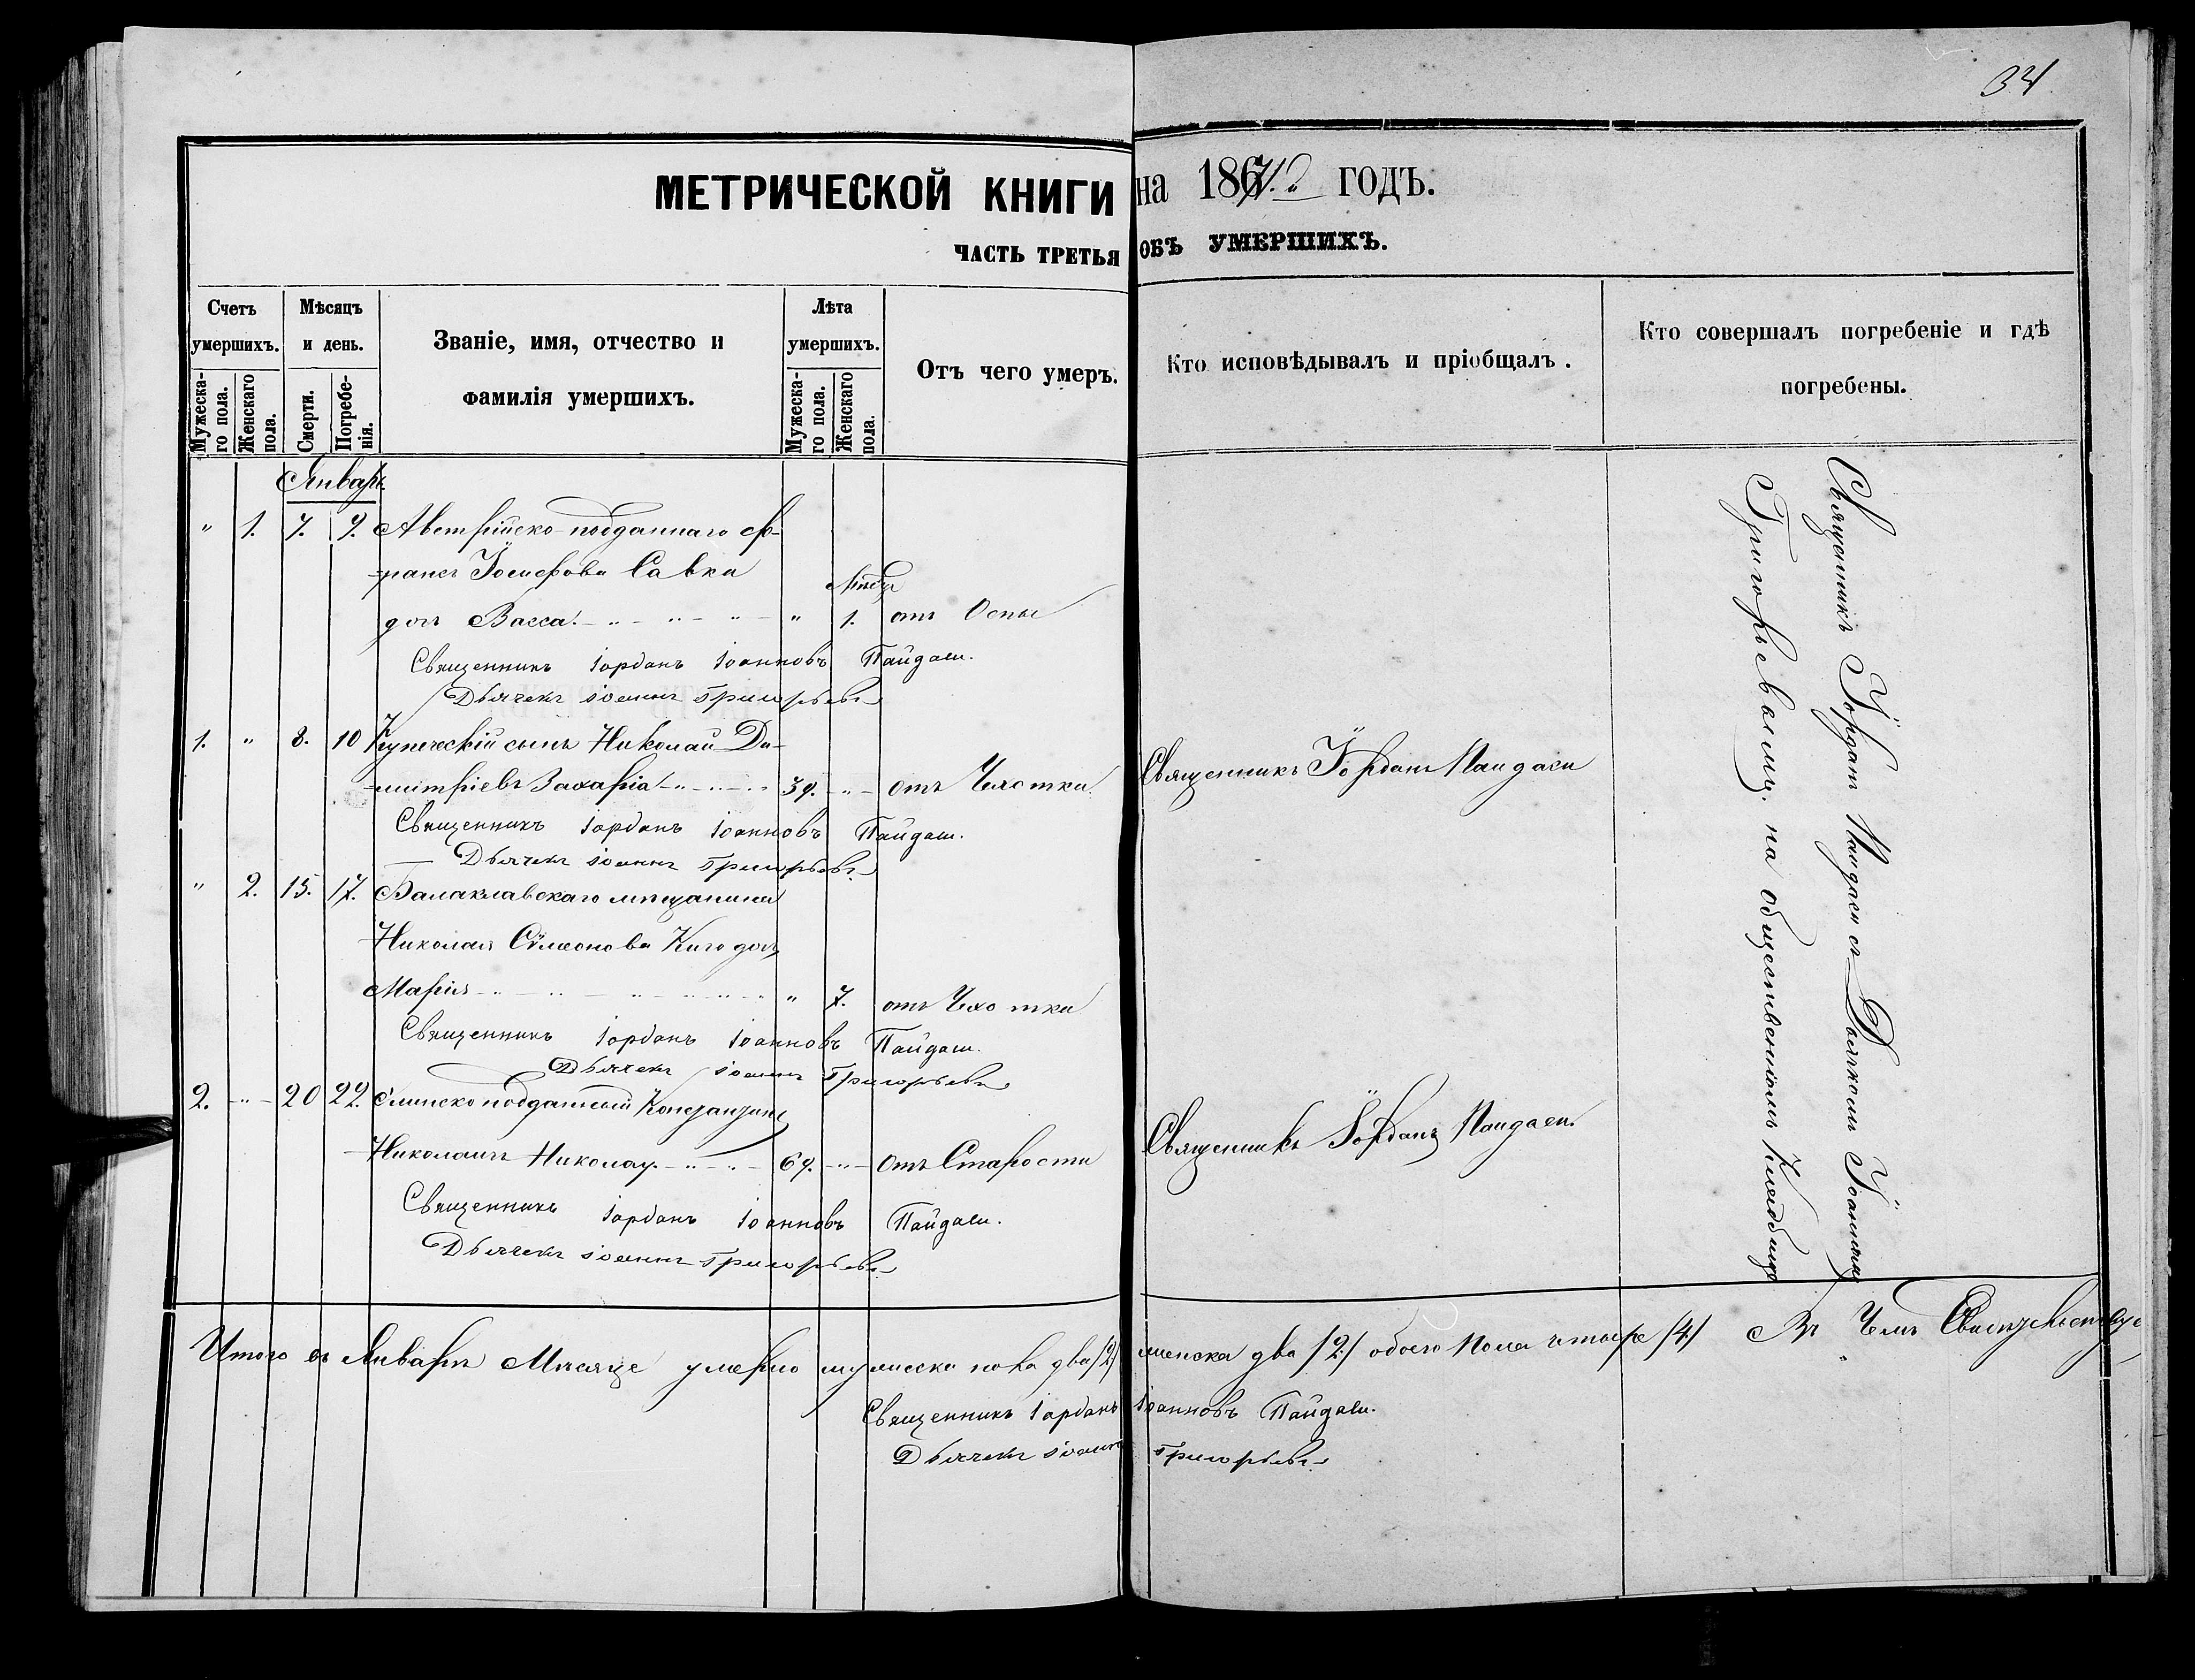 34
МЕТРИЧЕСКОЙ КНИГИ на 187 годъ.
ЧАСТЬ ТРЕТЬЯ ОБЪ УМЕРШИХЪ.
Счетъ умершихъ.
Мужеска-го пола.
Женскаго пола.
Мѣсяцъ и день.
Смерти.
Погребе-нія.
Званіе, имя, отчество и фамилія умершихъ.
Лѣта умершихъ.
Мужеска-го пола.
Женскаго пола.
Отъ чего умеръ.
Кто исповѣдывалъ и пріобщалъ.
Кто совершалъ погребеніе и гдѣ погребены.
Январь
" 1. 7. 9. Австрійско-подданнаго Ф-
ранса Іосифова Савки
дочь Васса " 1. отъ Оспы
Священникъ Іорданъ Іоанновъ Пайдаси.
Дьячекъ Іоаннъ Григорьевъ
1. " 8. 10 Купеческій сынъ Николай Ди-
митріевъ Захаріа 39. " отъ Чахотки
Священникъ Іорданъ Пайдаси
Священникъ Іорданъ Іоанновъ Пайдаси.
Дьячекъ Іоаннъ Григорьевъ
" 2. 15. 17. Балаклавскаго мѣщанина
Николая Симеонова Киго дочь
Марія " 7. отъ Чахотки
Священникъ Іорданъ Іоанновъ Пайдаси.
Дьячекъ Іоаннъ Григорьевъ
2. " 20 22. Елинско подданный Константинъ
Николаевъ Николау 69. " Отъ Старости
Священникъ Іорданъ Пайдаси.
Священникъ Іорданъ Іоанновъ Пайдаси.
Дьячекъ Іоаннъ Григорьевъ
Священникъ Іорданъ Пайдаси съ Дьячкомъ Іоанномъ
Григорьевымъ. на общественномъ Кладбищѣ
Итого въ Январѣ Мѣсяце умерло мужеска пола два /2/ женска два /2/ обоего пола четыре /4/ Въ Чемъ Свидѣтельствуе
Священникъ Іорданъ Іоанновъ Пайдаси.
Дьячекъ Іоаннъ Григорьевъ